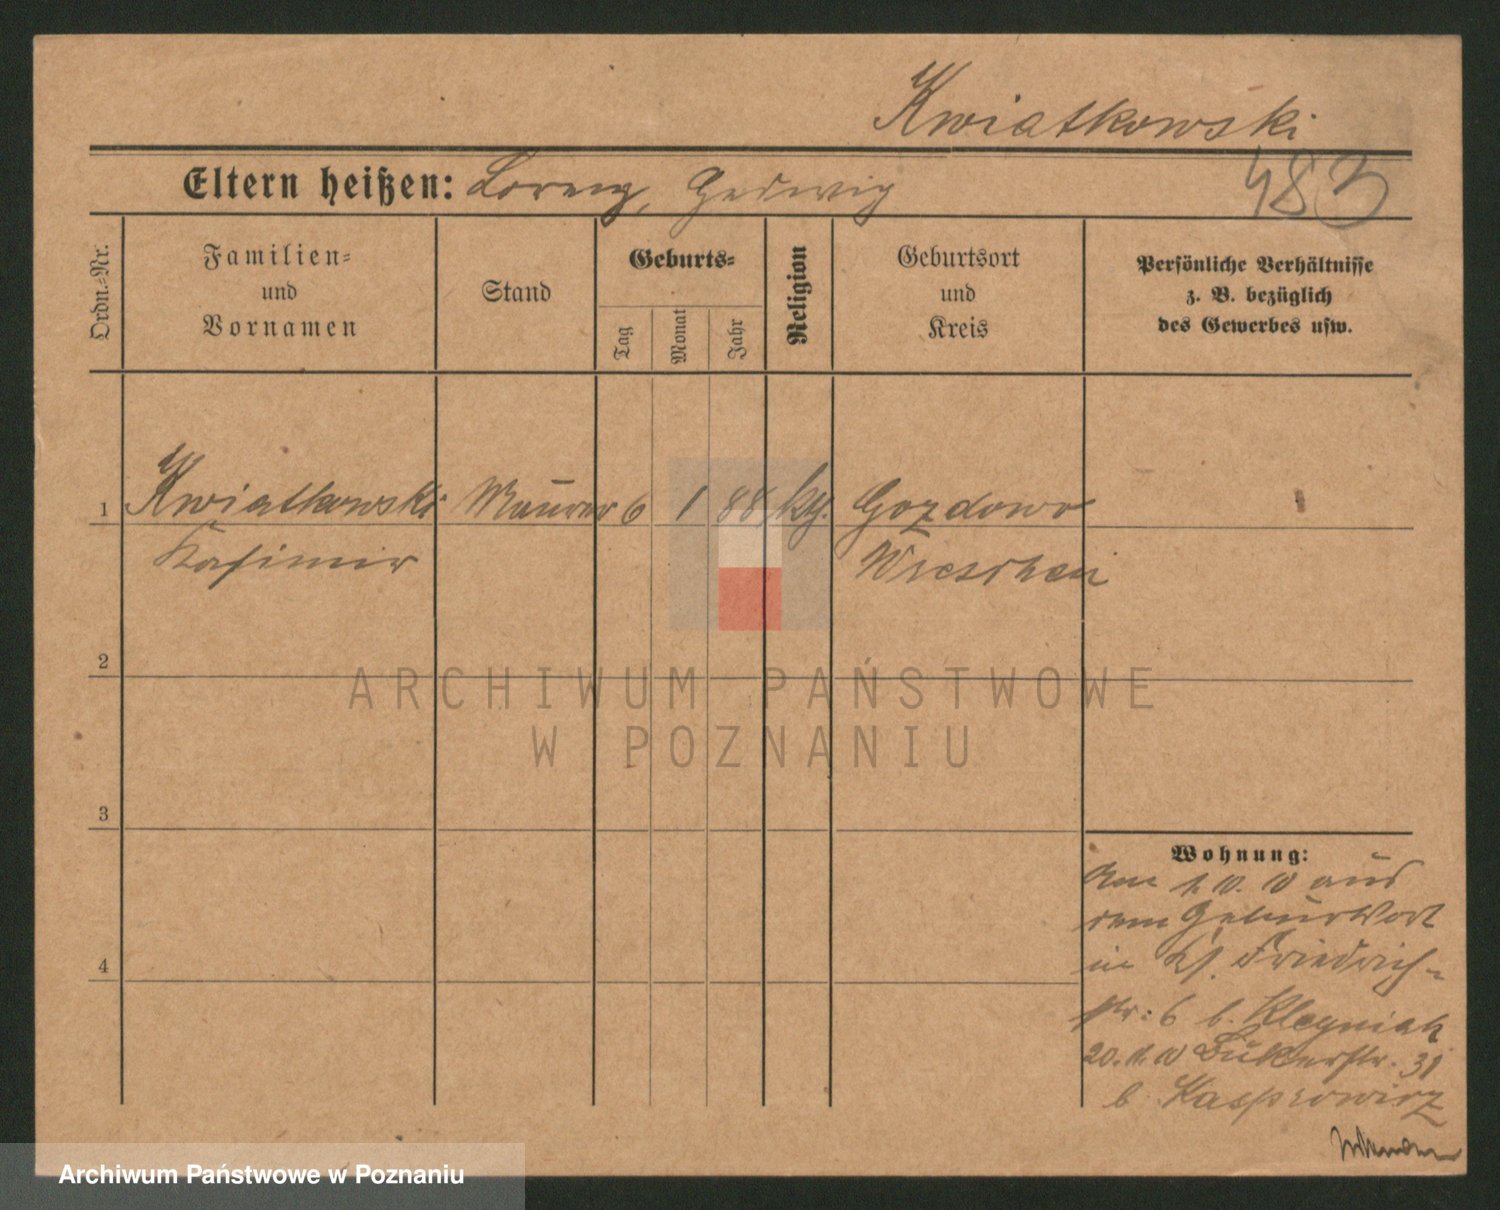 Kwiatkowski
483
Eltern heißen: Lorenz, Hedwig
Ordn.-Nr.
Familien-
und
Vornamen
Stand
Geburts-
Tag
Monat
Jahr
Religion
Geburtsort
und
Kreis
Persönliche Verhältnisse
z. B. bezüglich
des Gewerbes usw.
1 Kwiatkowski Maurer 6 1 88 kth. Gozdowo
Kasimir Wreschen
2
3
4
Wohnung:
Am 1. 10. 10 aus
dem Geburtsort
in Friedrich-
str: 6 b.
20. 11. 10 31
b Kasprowicz
ARCHIWUM PAŃSTWOWE
W POZNANIU
Archiwum Państwowe w Poznaniu